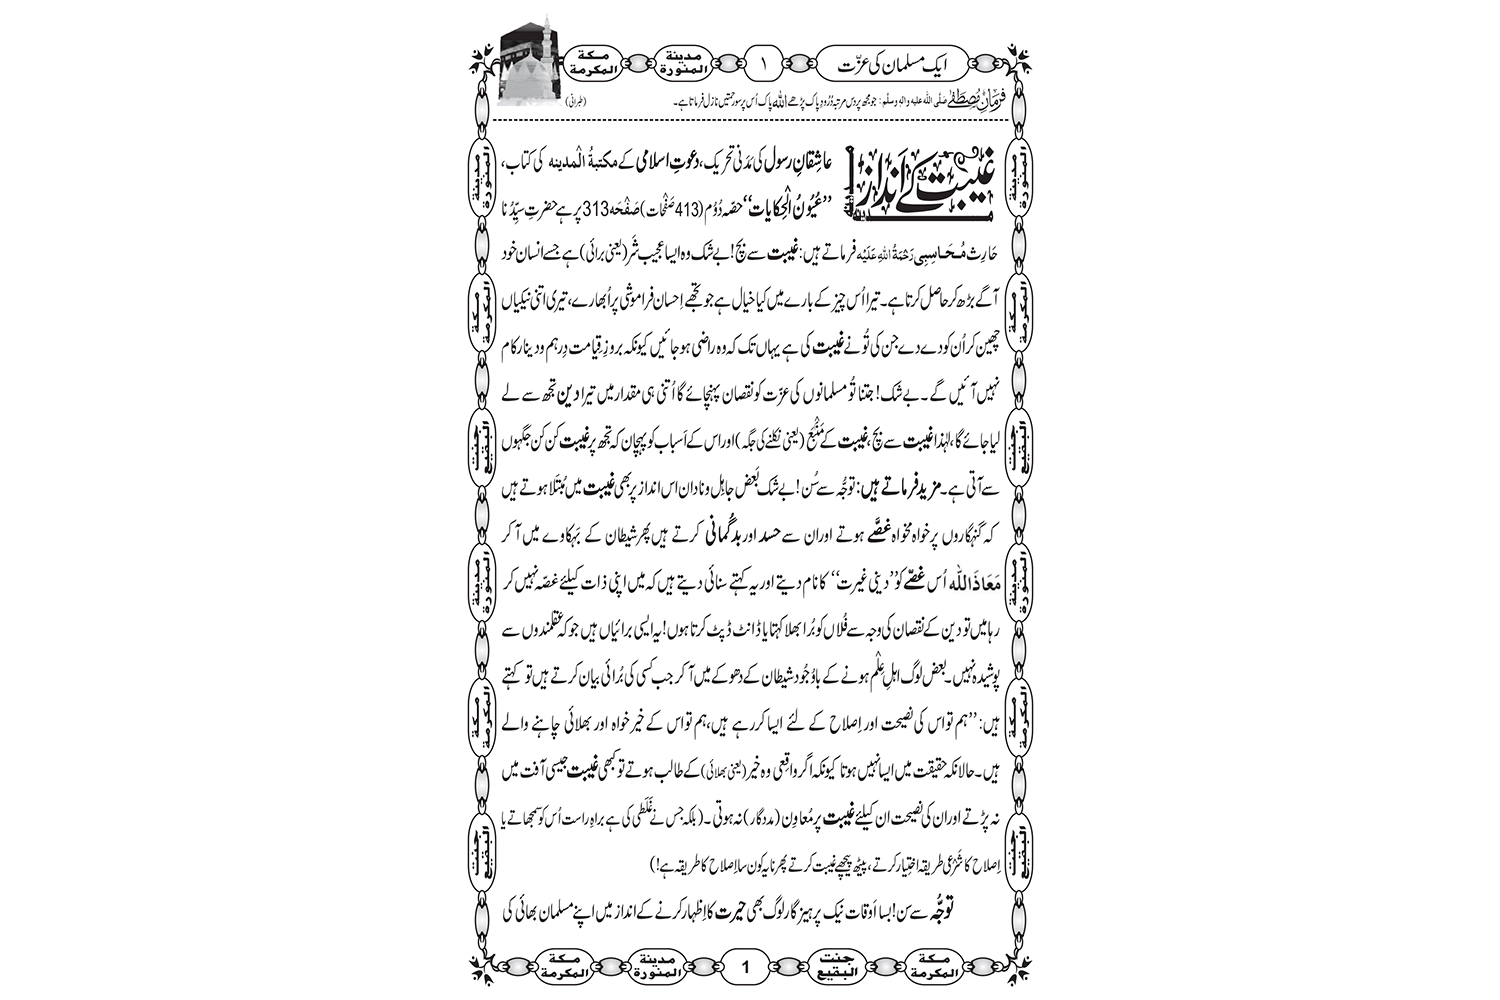 ایک مسلمان کی عزّت
۱
مدينة المنورة
مكة المكرمة
فرمانِ مُصطَفٰے صلی اللہ علیہ والہ وسلم: جو مجھ پر دس مرتبہ دُرُودِ پاک پڑھے اللہ پاک اُس پر سو رحمتیں نازِل فرماتا ہے۔ (طبرانی)
غیبت کے انداز
عاشِقانِ رسول کی مَدَنی تحریک، دعوتِ اسلامی کے مکتبۃُ الْمدینہ کی کتاب،
’’عُیُونُ الْحِکایات‘‘ حصّہ دُوُم (413 صَفْحات) صَفْحَہ 313 پر ہے حضرتِ سیِّدُنا
حَارِث مُحَاسِبِی رَحْمَۃُ اللہِ عَلَیْہ فرماتے ہیں: غیبت سے بچ! بے شک وہ ایسا عجیب شَر (یعنی برائی) ہے جسے انسان خود
آگے بڑھ کر حاصل کرتا ہے۔ تیرا اُس چیز کے بارے میں کیا خیال ہے جو تجھے اِحسان فراموشی پر اُبھارے، تیری اتنی نیکیاں
چھین کر اُن کو دے دے جن کی تُو نے غیبت کی ہے یہاں تک کہ وہ راضی ہو جائیں کیونکہ بروزِ قِیامت دِرہم و دینار کام
نہیں آئیں گے۔ بے شک! جتنا تُو مسلمانوں کی عزّت کو نقصان پہنچائے گا اُتنی ہی مقدار میں تیرا دین تجھ سے لے
لیا جائے گا، لہٰذا غیبت سے بچ، غیبت کے مَنْبَع (یعنی نکلنے کی جگہ) اور اس کے اَسباب کو پہچان کہ تجھ پر غیبت کن کن جگہوں
سے آتی ہے۔ مزید فرماتے ہیں: توجُّہ سے سُن! بے شک بَعض جاہِل و نادان اس انداز پر بھی غیبت میں مُبتَلا ہوتے ہیں
کہ گنہگاروں پر خواہ مخواہ غصَّے ہوتے اور ان سے حسد اور بدگُمانی کرتے ہیں پھر شیطان کے بَہکاوے میں آ کر
مَعَاذَ اللّٰہ اُس غصّے کو ’’دینی غیرت‘‘ کا نام دیتے اور یہ کہتے سنائی دیتے ہیں کہ میں اپنی ذات کیلئے غصّہ نہیں کر
رہا میں تو دین کے نقصان کی وجہ سے فُلاں کو بُرا بھلا کہتا یا ڈانٹ ڈپٹ کرتا ہوں! یہ ایسی برائیاں ہیں جو کہ عَقْلمندوں سے
پوشیدہ نہیں۔ بعض لوگ اہلِ عِلْم ہونے کے باوُجُود شیطان کے دھوکے میں آ کر جب کسی کی بُرائی بیان کرتے ہیں تو کہتے
ہیں: ’’ہم تو اس کی نصیحت اور اِصلاح کے لئے ایسا کر رہے ہیں، ہم تو اس کے خیر خواہ اور بھلائی چاہنے والے
ہیں۔ حالانکہ حقیقت میں ایسا نہیں ہوتا کیونکہ اگر واقِعی وہ خیر (یعنی بھلائی) کے طالب ہوتے تو کبھی غیبت جیسی آفت میں
نہ پڑتے اور ان کی نصیحت ان کیلئے غیبت پر مُعاوِن (مددگار) نہ ہوتی۔ (بلکہ جس نے غَلَطی کی ہے براہِ راست اُس کو سمجھاتے یا
اِصلاح کا شَرْعی طریقہ اختیار کرتے، پیٹھ پیچھے غیبت کرتے پھرنا یہ کون سا اِصلاح کا طریقہ ہے!)
توجُّہ سے سن! بسا اَوقات نیک پرہیزگار لوگ بھی حیرت کا اِظہار کرنے کے انداز میں اپنے مسلمان بھائی کی
مدينة المنورة
مكة المكرمة
جنت البقيع
مدينة المنورة
مكة المكرمة
جنت البقيع
مدينة المنورة
مكة المكرمة
جنت البقيع
مدينة المنورة
مكة المكرمة
جنت البقيع
مكة المكرمة
جنت البقيع
1
مدينة المنورة
مكة المكرمة